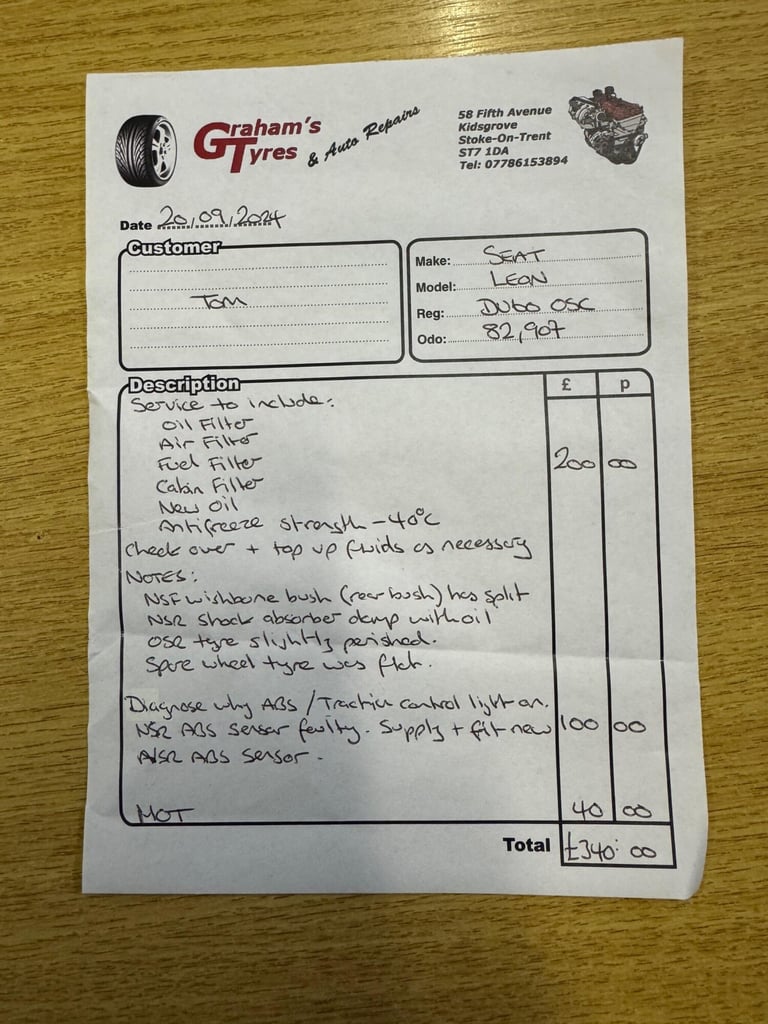 Graham's
Tyres
& Auto Repairs
58 Fifth Avenue
Kidsgrove
Stoke-On-Trent
ST7 1DA
Tel: 07786153894
Date 20,09,2024
Customer
Tom
Make: SEAT
Model: LEON
Reg: DU60 OSC
Odo: 82,907
Description £ p
Service to include:
Oil Filter
Air Filter
Fuel Filter 200 00
Cabin Filter
New Oil
Antifreeze strength -40°C
Check over + top up fluids as necessary
NOTES:
NSF wishbone bush (rear bush) has split
NSR shock absorber damp with oil
OSR tyre slightly perished.
Spare wheel tyre was flat.
Diagnose why ABS / Traction control light on.
NSR ABS sensor faulty. Supply + fit new 100 00
NSR ABS sensor.
MOT 40 00
Total £340:00